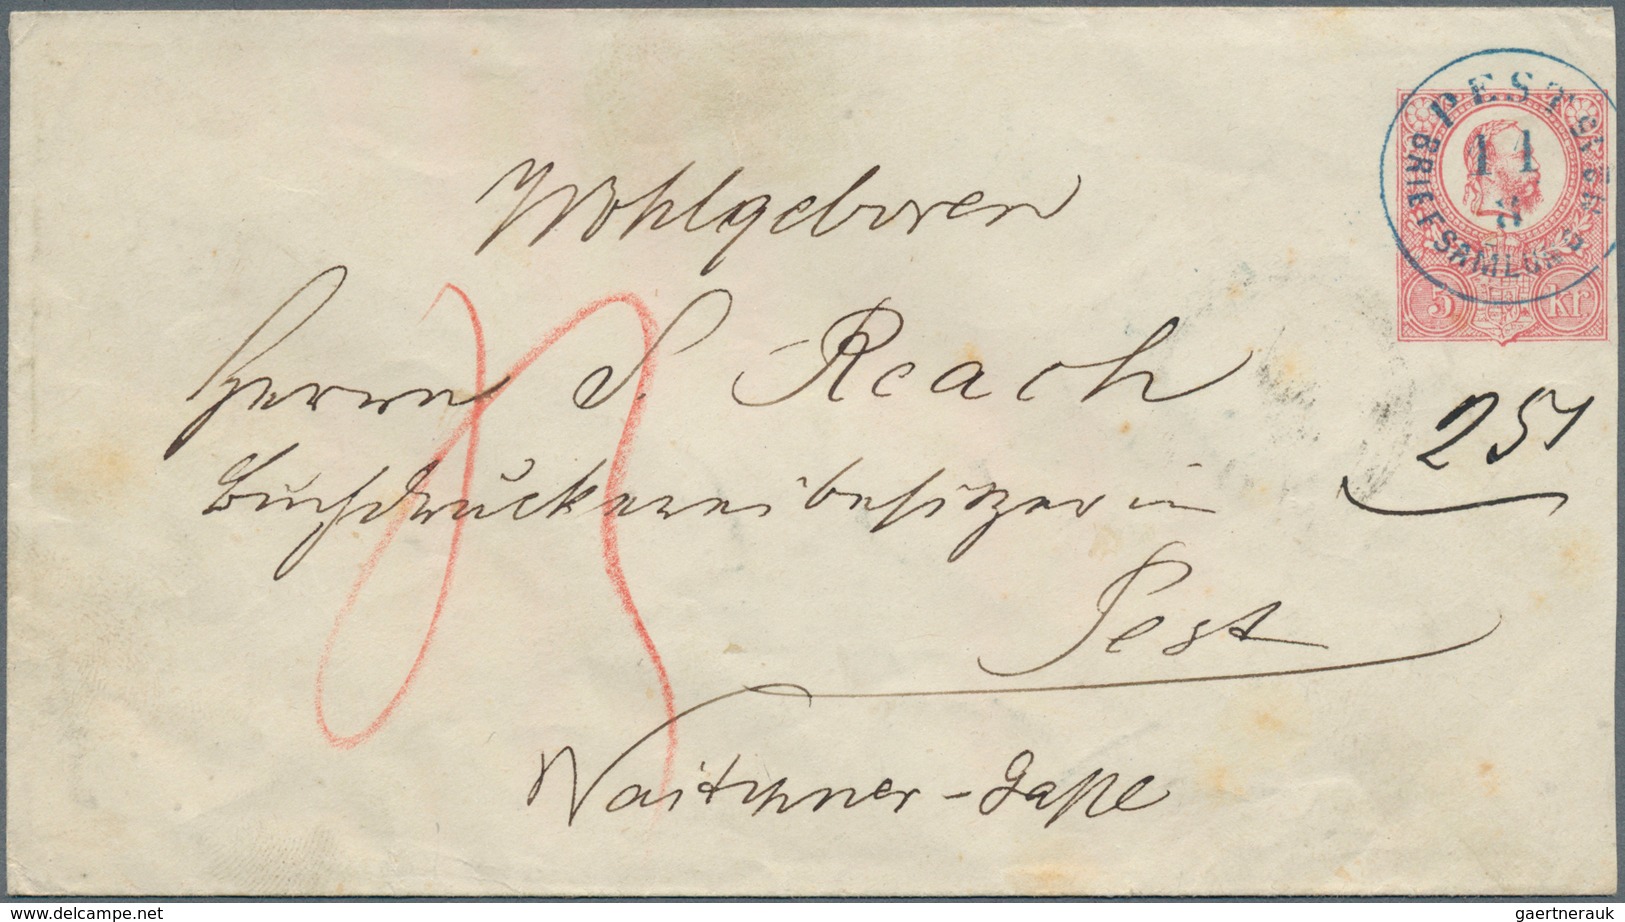 PEST
11
8
BRIEFSAMLUNG
5 Kr
Wohlgeboren
Herrn S. Reach
Buchdruckereibesitzer in
251
Pest
Waitzner-Gaße
© www.delcampe.net
gaertnerauk